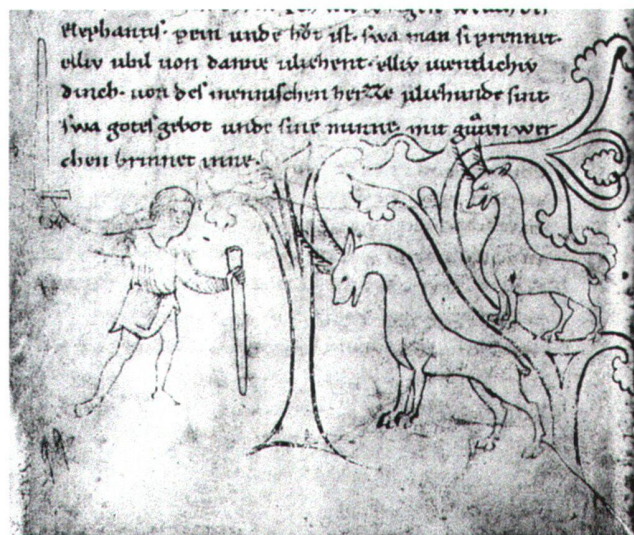 elephantis. pein unde hôt ist. swa man si prennet.
elliv ubil von danne vliehent. elliv vientlichiv
dinch. von des mennischen herzze vliehunde sint
swa gotes gebot unde sine minne. mit gůten wer
chen brinnet inne.